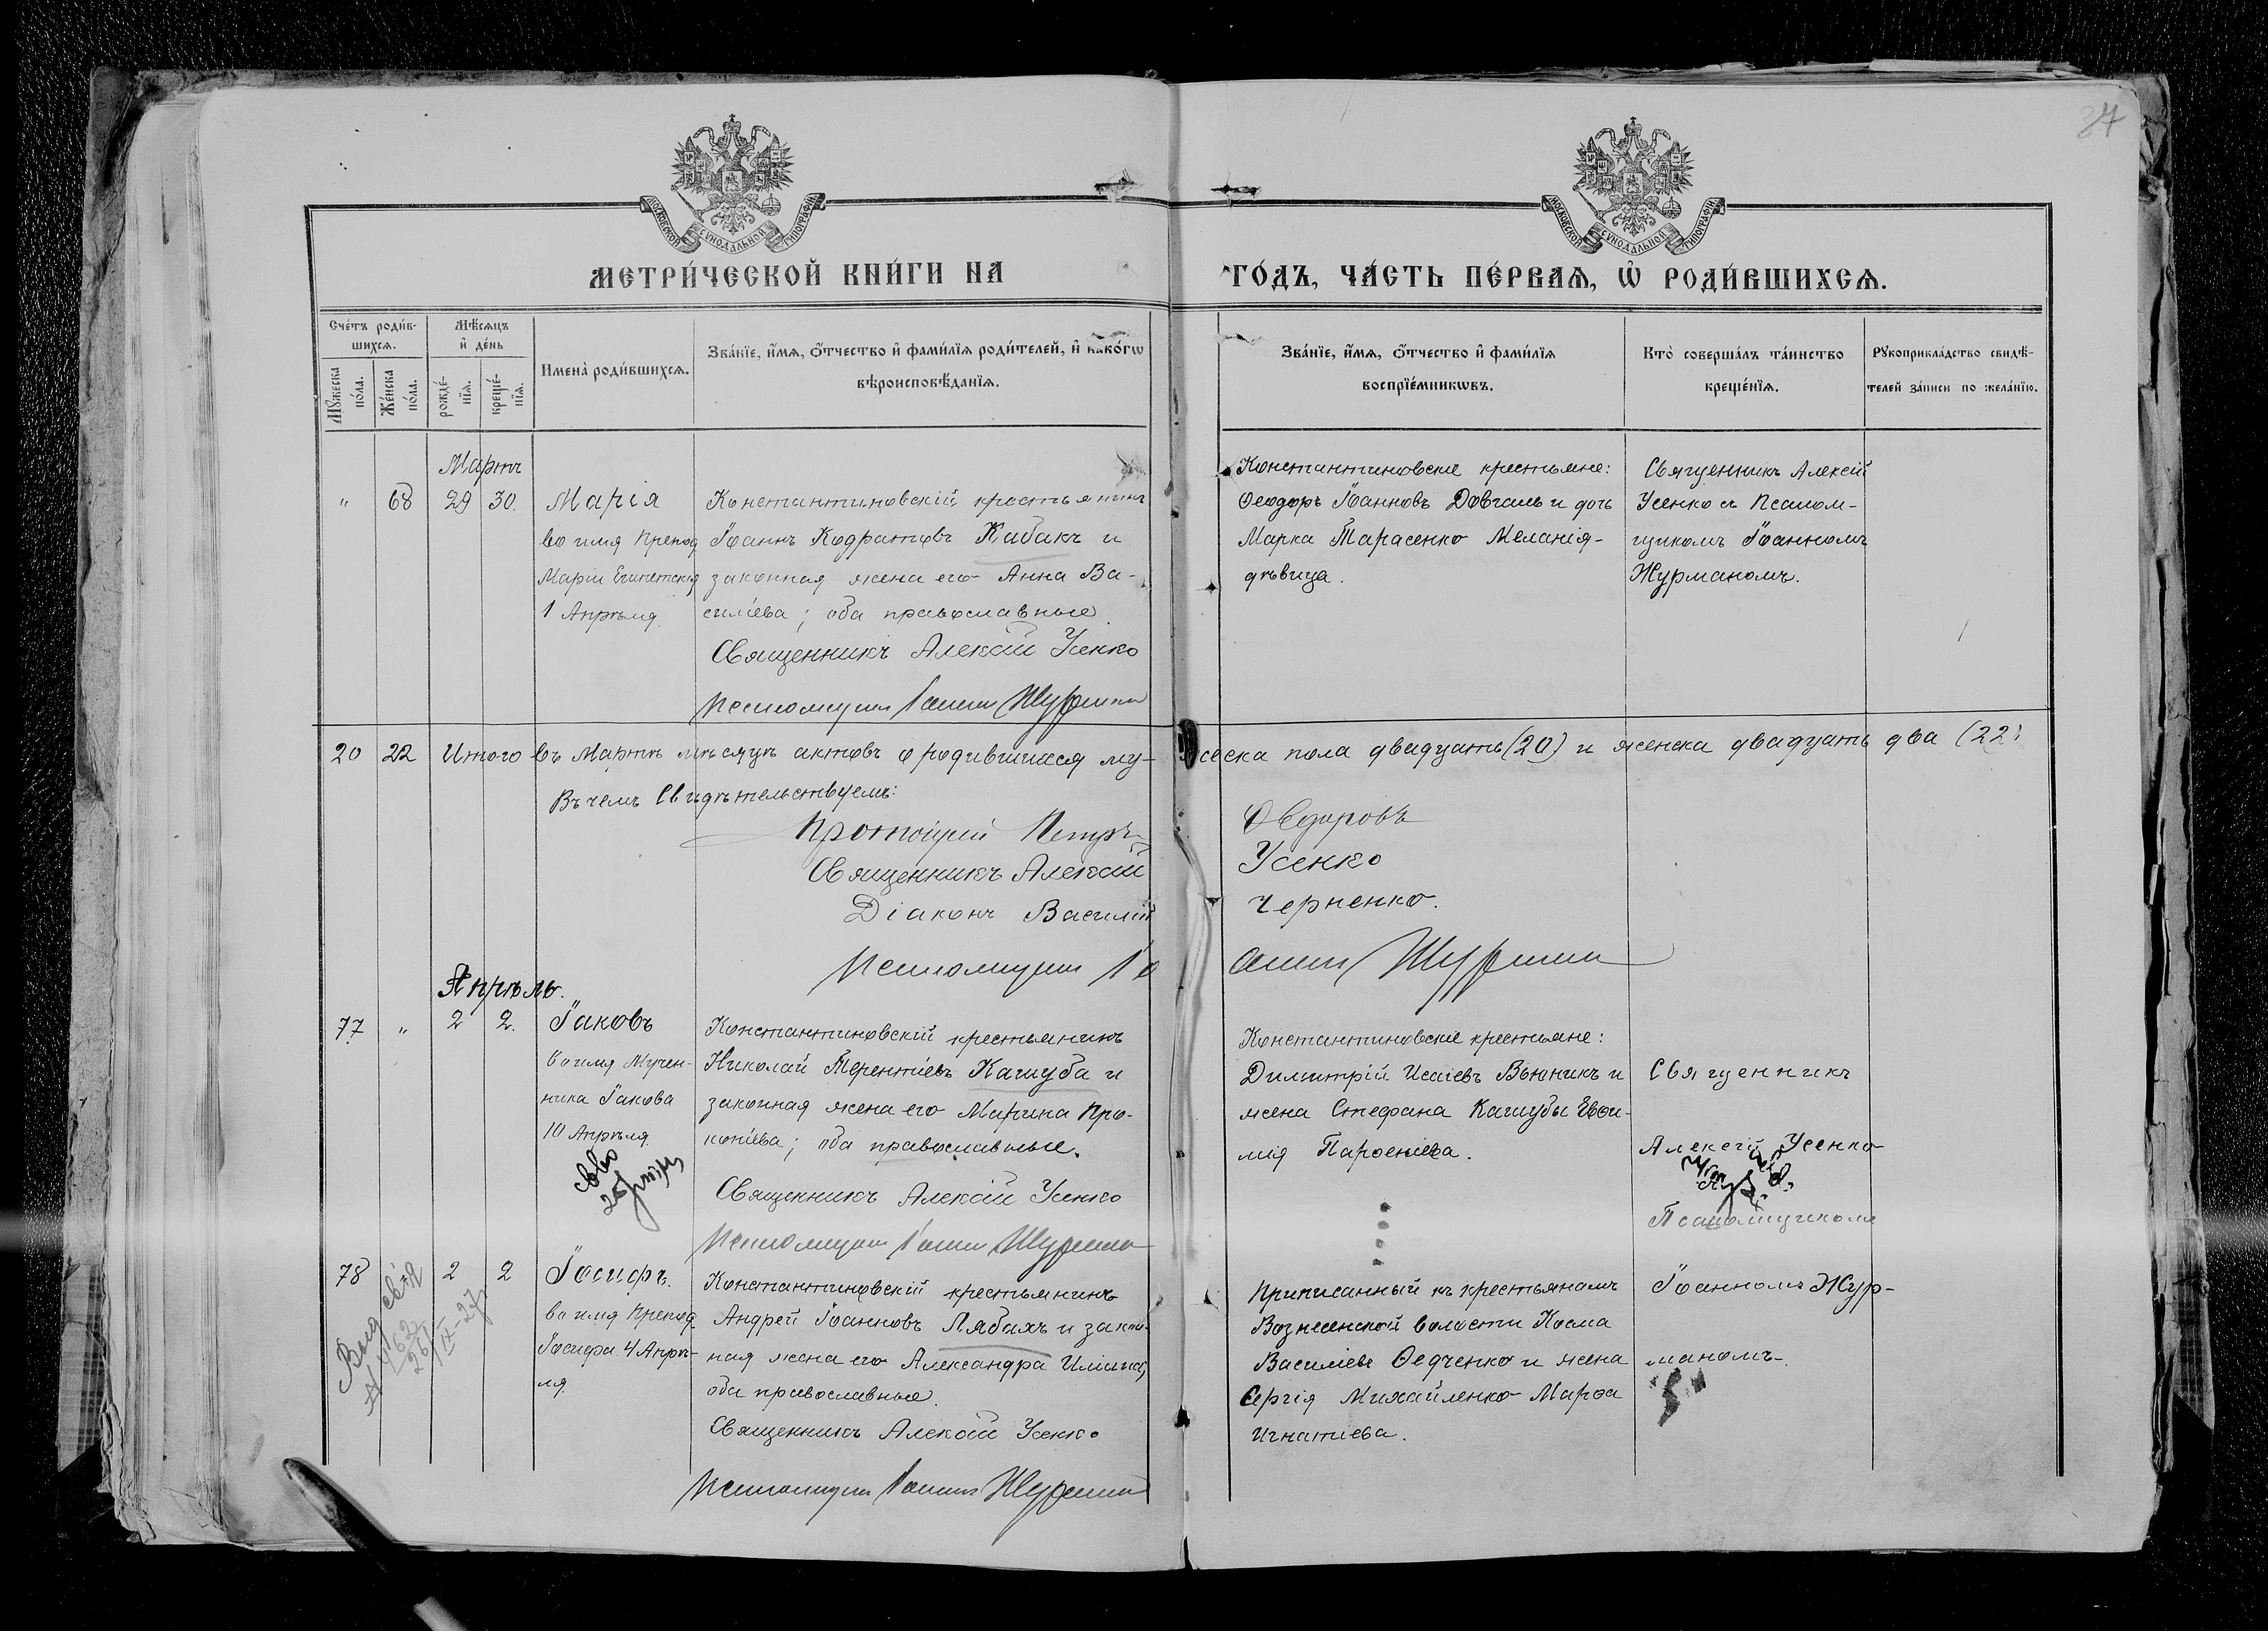 34
МОСКОВСКОЙ СѴНОДАЛЬНОЙ ТИПОГРАФІИ
МОСКОВСКОЙ СѴНОДАЛЬНОЙ ТИПОГРАФІИ
МЕТРИ́ЧЕСКОЙ КНИ́ГИ НА
ГО́ДЪ, ЧА́СТЬ ПЕ́РВАѦ, Ѡ҆ РОДИ́ВШИХСѦ.
Сче́тъ роди́в-
шихсѧ.
Мꙋ́жеска по́ла.
Же́нска по́ла.
Мѣ́сѧцъ
и҆ де́нь
рожде́-
нїѧ.
креще́-
нїѧ.
И҆мена̀ роди́вшихсѧ.
Зва́нїе, и҆́мѧ, ѻ҆́тчество и҆ фами́лїѧ роди́телей, и҆ како́гѡ
вѣроисповѣ́данїѧ.
Зва́нїе, и҆́мѧ, ѻ҆́тчество и҆ фами́лїѧ
воспрїе́мникѡвъ.
Кто̀ соверша́лъ та́инство
креще́нїѧ.
Рꙋкоприкла́дство свидѣ́-
телей за́писи по жела́нїю.
Мартъ
" 68 29 30.
Марія
во имя Препод
Маріи Египетскія
1 Апрѣля.
Константиновскій крестьянинъ
Іоаннъ Кодратовъ Кабакъ и
законная жена его Анна Ва-
силіева; оба православные.
Священникъ Алексій Усенко
Псаломщикъ Іоаннъ Журманъ
Константиновские крестьяне:
Ѳеодоръ Іоанновъ Довгаль и дочь
Марка Тарасенко Меланія-
дѣвица.
Священникъ Алексій
Усенко съ Псалом-
щикомъ Іоанномъ
Журманомъ.
20 22 Итого въ Мартѣ мѣсяцѣ актовъ о родившихся му-жеска пола двадцать (20) и женска двадцать два (22)
Въ чемъ свидѣтельствуемъ:
Протоіерей Петръ Ѳедоровъ
Священникъ Алексій Усенко
Діаконъ Василій Черненко.
Псаломщикъ Іоаннъ Журманъ
Апрѣль.
77 " 2 2.
Іаковъ
во имя Мучен-
ника Іакова
10 Апрѣля
Константиновскій крестьянинъ
Николай Терентіевъ Кашуба и
законная жена его Марина Про-
копіева; оба православные.
Священникъ Алексій Усенко
Псаломщикъ Іоаннъ Журманъ
Константиновские крестьяне:
Димитрій Исаіевъ Вьюникъ и
жена Стефана Кашубы Евѳи-
мія Парѳеніева.
Священникъ
Алексѣй Усенко
Псаломщикомъ
78 2 2
Іосифъ.
во имя Препод.
Іосифа 4 Апрѣ-
ля
Константиновскій крестьянинъ
Андрей Іоанновъ Лябахъ и закон-
ная жена его Александра Иліина,
оба православные.
Священникъ Алексій Усенко
Псаломщикъ Іоаннъ Журманъ
Приписанный къ крестьянамъ
Вознесенской волости Косма
Василіевъ Ѳедченко и жена
Сергія Михайленко Марѳа
Игнатіева.
Іоанномъ Жур-
маномъ.